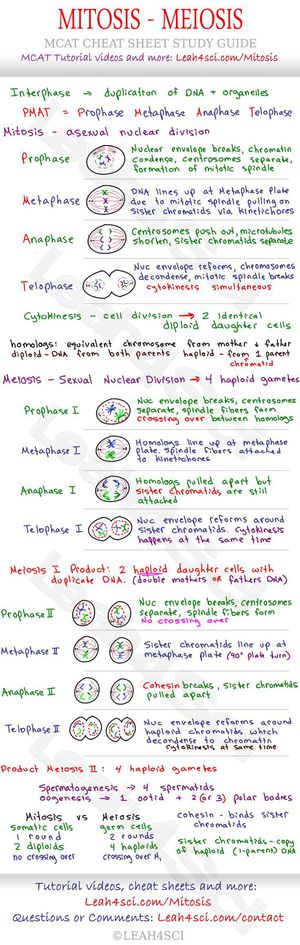 MITOSIS - MEIOSIS
MCAT CHEAT SHEET STUDY GUIDE
MCAT Tutorial videos and more: Leah4sci.com/Mitosis
Interphase → duplication of DNA + organelles
PMAT = Prophase Metaphase Anaphase Telophase
Mitosis - asexual nuclear division
Prophase
Nuclear envelope breaks, chromatin
condense, centrosomes separate,
formation of mitotic spindle
Metaphase
DNA lines up at Metaphase plate
due to mitotic spindle pulling on
sister chromatids via kinetichores
Anaphase
Centrosomes push out, microtubules
shorten, sister chromatids separate
Telophase
Nuc envelope reforms, chromosomes
decondense, mitotic spindle breaks
cytokinesis simultaneous
Cytokinesis - cell division → 2 identical
diploid daughter cells
homologs: equivalent chromosome from mother + father
diploid - DNA from both parents haploid - from 1 parent
chromatid
Meiosis - Sexual Nuclear Division → 4 haploid gametes
Prophase I
Nuc envelope breaks, centrosomes
separate, spindle fibers form
crossing over between homologs
Metaphase I
Homologs line up at metaphase
plate, spindle fibers attached
to kinetichores
Anaphase I
Homologs pulled apart but
sister chromatids are still
attached
Telophase I
Nuc envelope reforms around
sister chromatids. Cytokinesis
happens at the same time
Meiosis I Product: 2 haploid daughter cells with
duplicate DNA. (double mothers or fathers DNA)
Prophase II
Nuc envelope breaks, centrosomes
separate, spindle fibers form
No crossing over
Metaphase II
Sister chromatids line up at
metaphase plate (90° plate turn)
Anaphase II
Cohesin breaks, sister chromatids
pulled apart
Telophase II
Nuc envelope reforms around
haploid chromatids which
decondense to chromatin
Cytokinesis at same time
Product Meiosis II: 4 haploid gametes
Spermatogenesis → 4 spermatids
oogenesis → 1 ootid + 2 (or 3) polar bodies
Mitosis vs Meiosis
somatic cells germ cells
1 round 2 rounds
2 diploids 4 haploids
no crossing over crossing over M1
cohesin - binds sister
chromatids
Sister chromatids - copy
of haploid (1-parent) DNA
Tutorial videos, cheat sheets and more:
Leah4sci.com/Mitosis
Questions or Comments: Leah4sci.com/contact
© LEAH4SCI